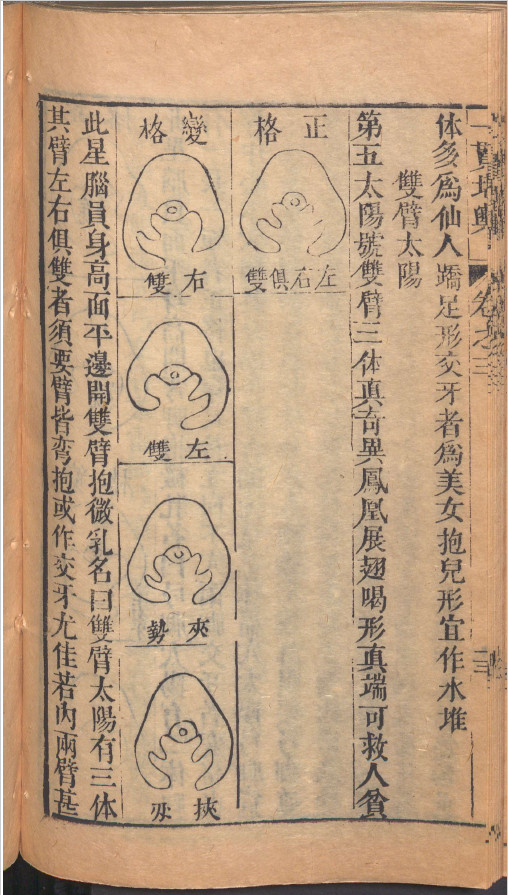 一貫堪輿 卷之三
体多為仙人蹻足形交牙者為美女抱兒形宜作水堆
雙臂太陽
第五太陽號雙臂三体真奇異鳳凰展翅喝形真端可救人貧
正格
左右俱雙
變格
右雙
左雙
夾勢
挾
此星腦員身高面平邊開雙臂抱微乳名曰雙臂太陽有三体
其臂左右俱雙者須要臂皆弯抱或作交牙尤佳若內兩臂甚